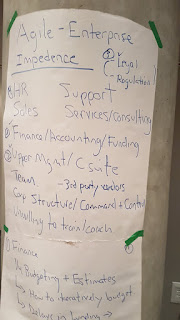 Agile - Enterprise
Impedence
③ Legal
Regulation
⑧ HR Support
Sales Services/Consulting
① Finance/Accounting/Funding
② Upper Mgmt/Csuite
Team - 3rd party vendors
Corp Structure/Command + Control
Unwilling to train/coach
① Finance
Budgeting + Estimates
↳ How to iteratively budget
↳ Delays in funding →